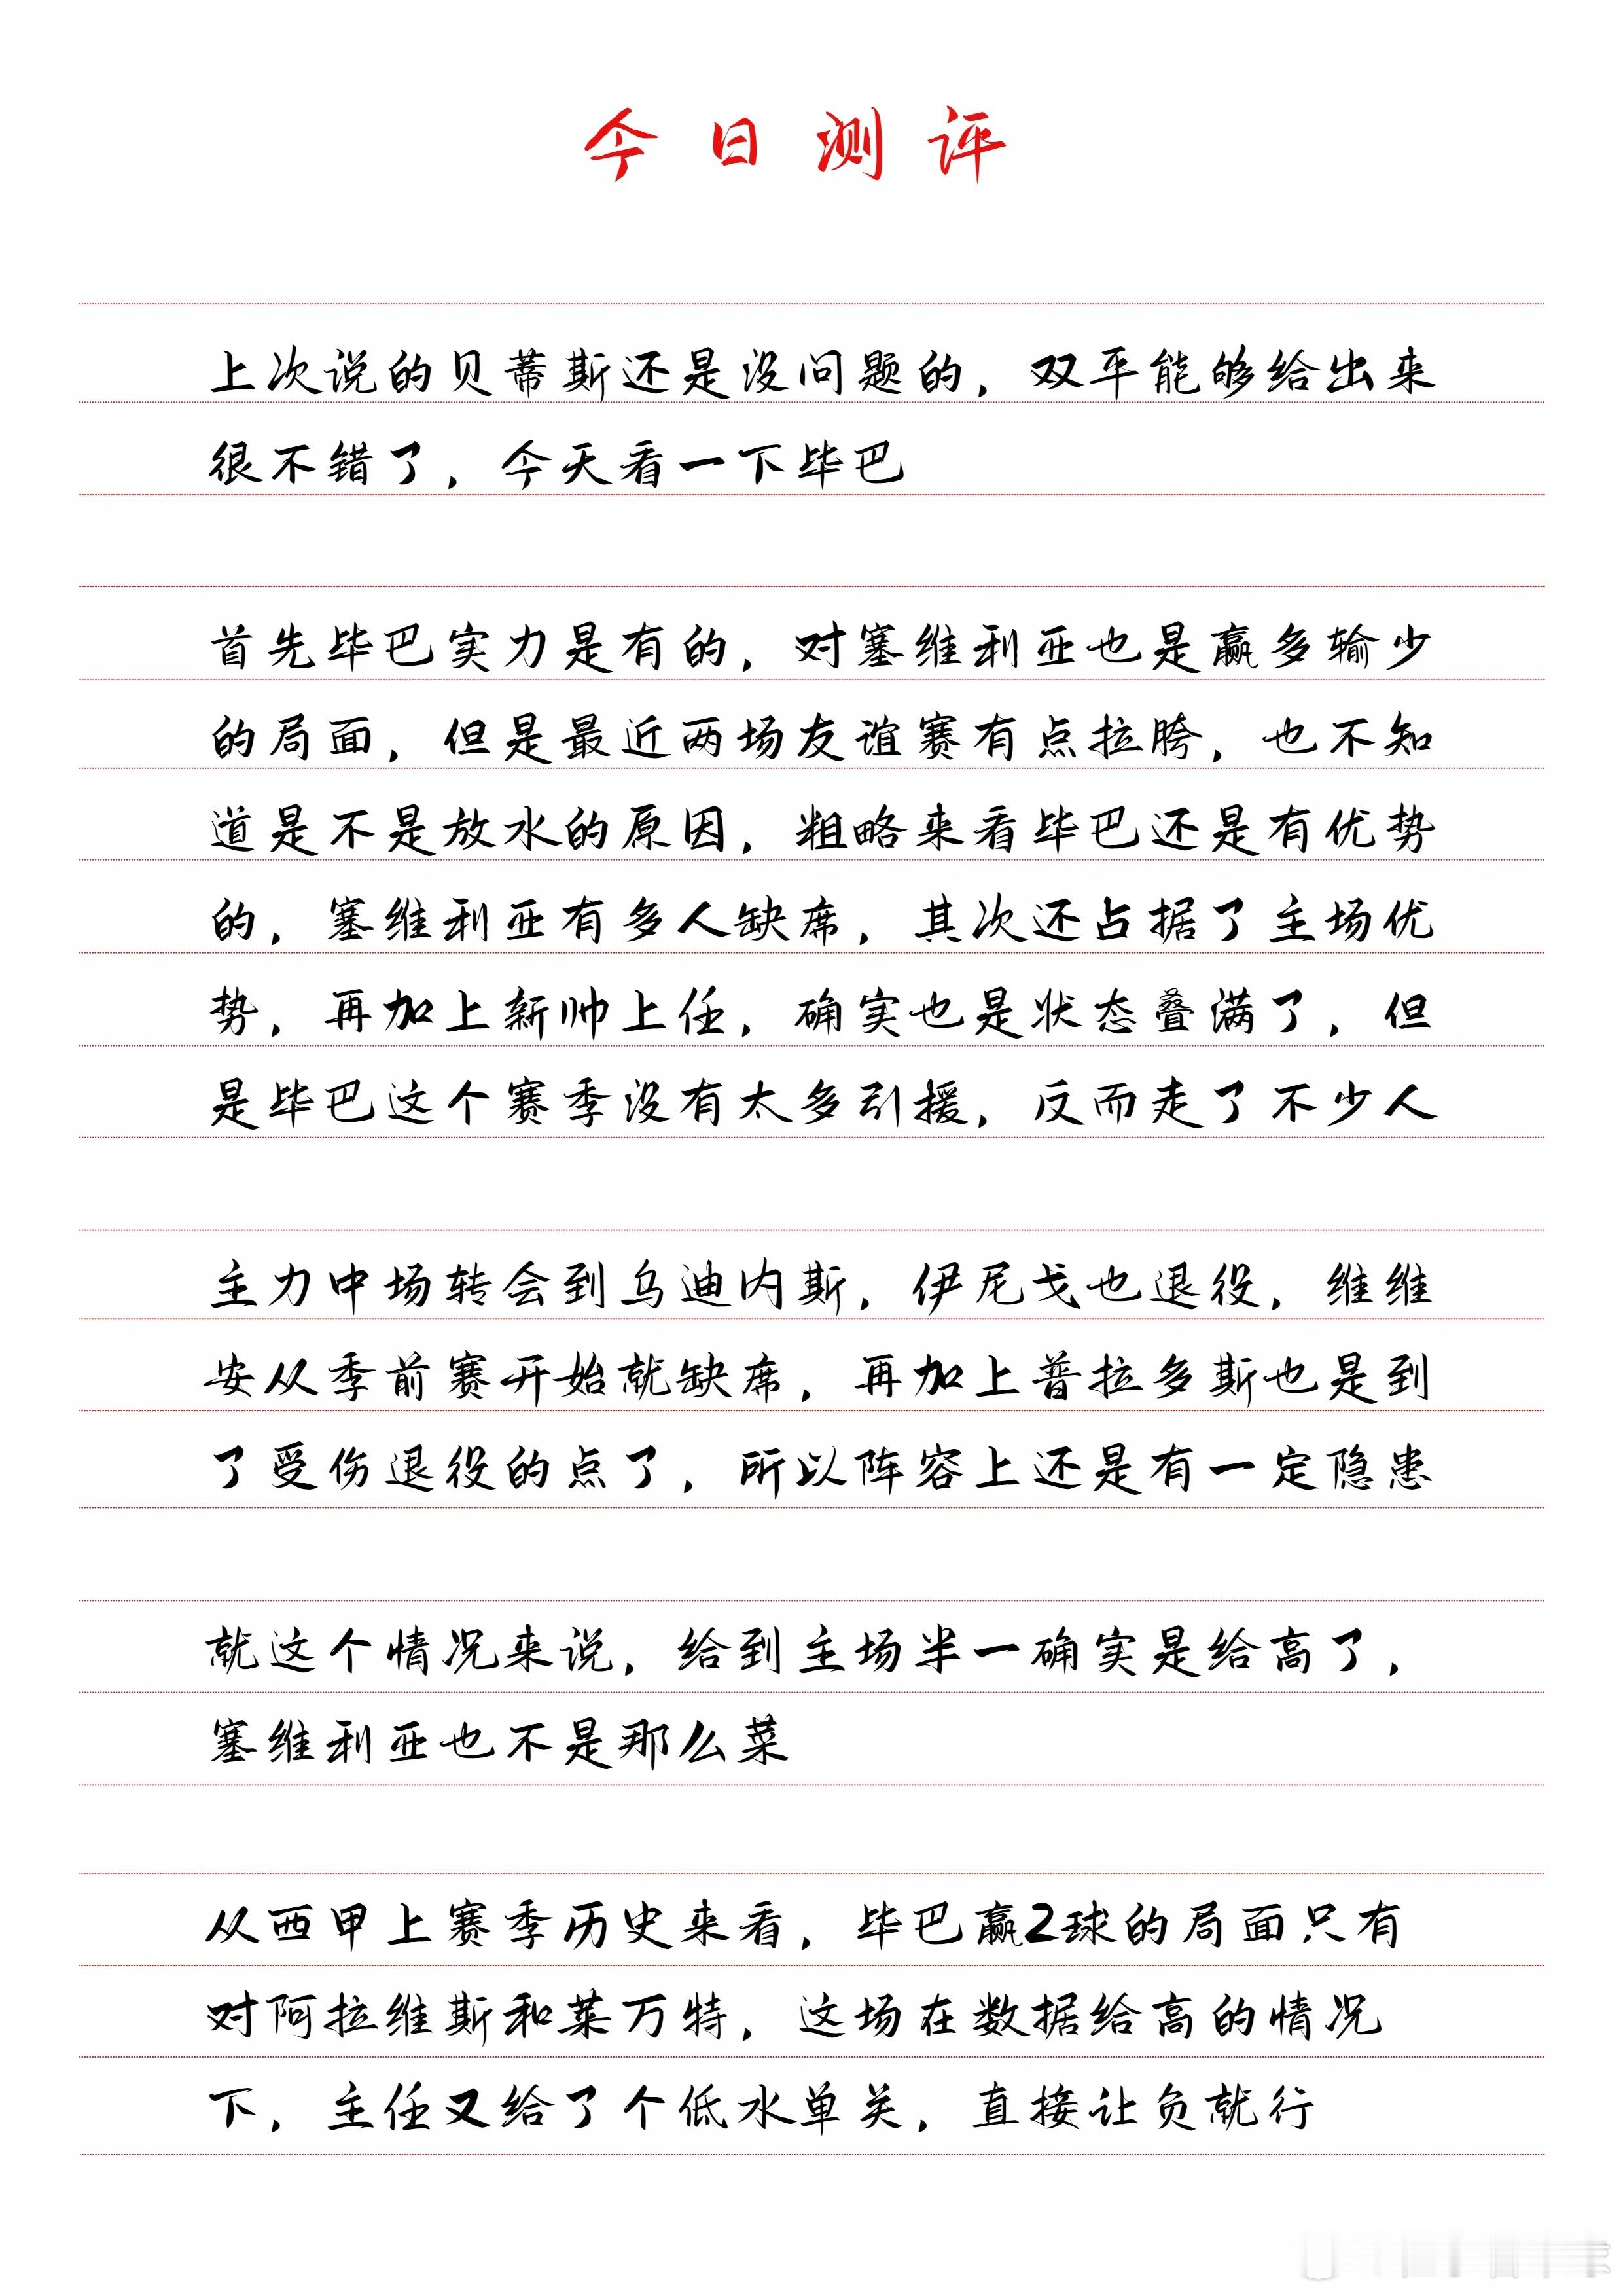 今日测评
上次说的贝蒂斯还是没问题的，双平能够给出来
很不错了，今天看一下毕巴
首先毕巴实力是有的，对塞维利亚也是赢多输少
的局面，但是最近两场友谊赛有点拉胯，也不知
道是不是放水的原因，粗略来看毕巴还是有优势
的，塞维利亚有多人缺席，其次还占据了主场优
势，再加上新帅上任，确实也是状态叠满了，但
是毕巴这个赛季没有太多引援，反而走了不少人
主力中场转会到乌迪内斯，伊尼戈也退役，维维
安从季前赛开始就缺席，再加上普拉多斯也是到
了受伤退役的点了，所以阵容上还是有一定隐患
就这个情况来说，给到主场半一确实是给高了，
塞维利亚也不是那么菜
从西甲上赛季历史来看，毕巴赢2球的局面只有
对阿拉维斯和莱万特，这场在数据给高的情况
下，主任又给了个低水单关，直接让负就行